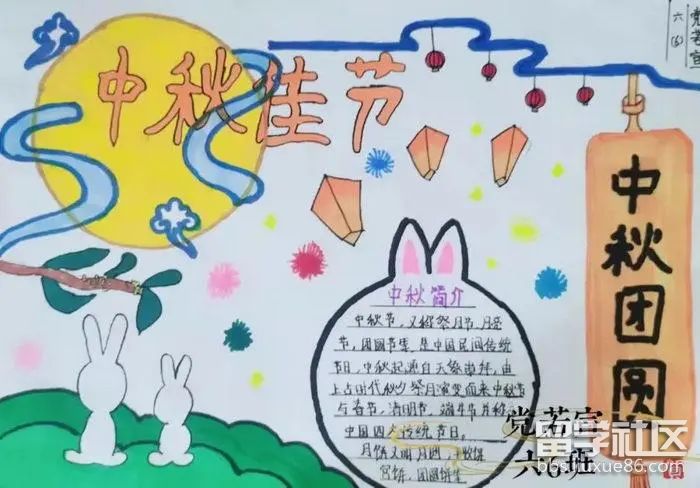 中秋佳节
党若宣
六(6)
中秋团圆
中秋简介
中秋节，又称祭月节、月
节、团圆节等，是中国民间传统
节日，中秋起源自天象崇拜，由
上古时代秋夕祭月演变而来中秋节
与春节、清明节、端午节并称
中国四大传统节日。
月饼又叫月团、
宫饼、团圆饼等
党若宣
六6班
留学社区
bbs.liuxue86.com